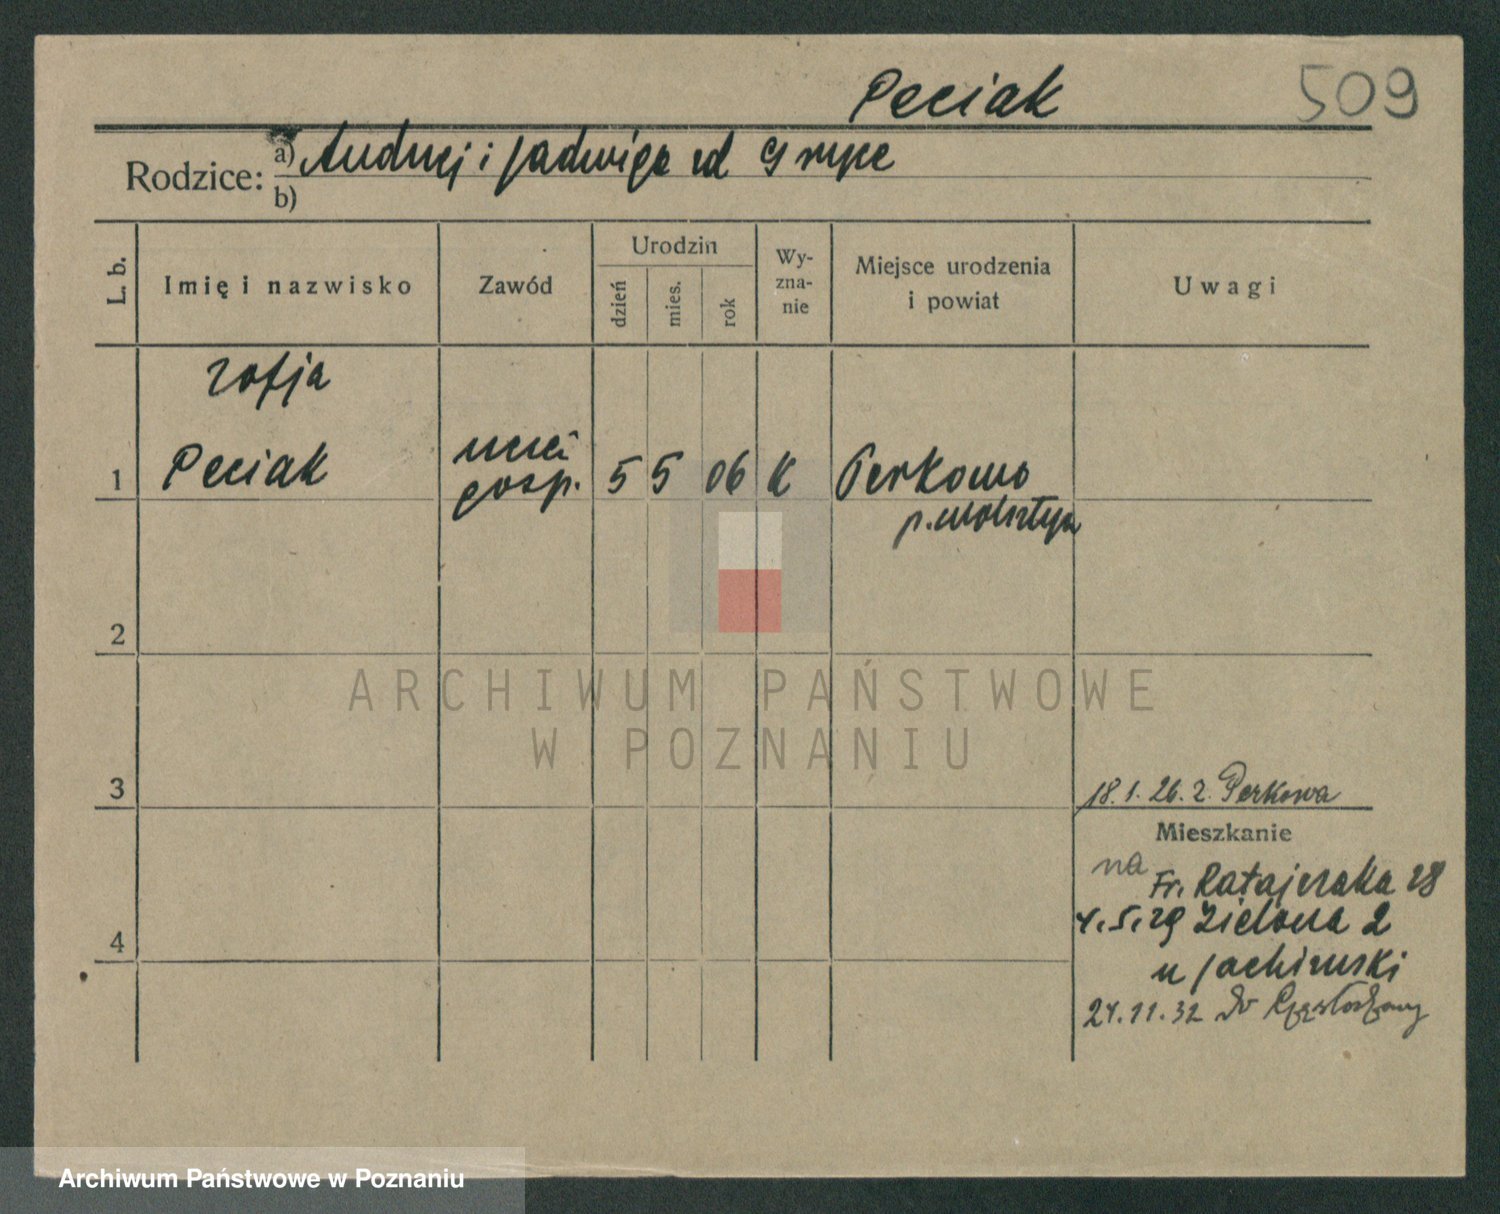 Peciak 509
Rodzice: a) Andrzej i Jadwiga zd
b)
L. b. Imię i nazwisko Zawód Urodzin dzień mies. rok Wy-zna-nie Miejsce urodzenia i powiat Uwagi
Zofja
1 Peciak gosp. 5 5 06 K Perkowo
p. Wolsztyn
2
ARCHIWUM PAŃSTWOWE
W POZNANIU
3 18.1.26. z Perkowa
Mieszkanie
na Fr. Ratajczaka 28
4.5.29 Zielona 2
4 u Jachimski
24.11.32 do Częstochowy
Archiwum Państwowe w Poznaniu